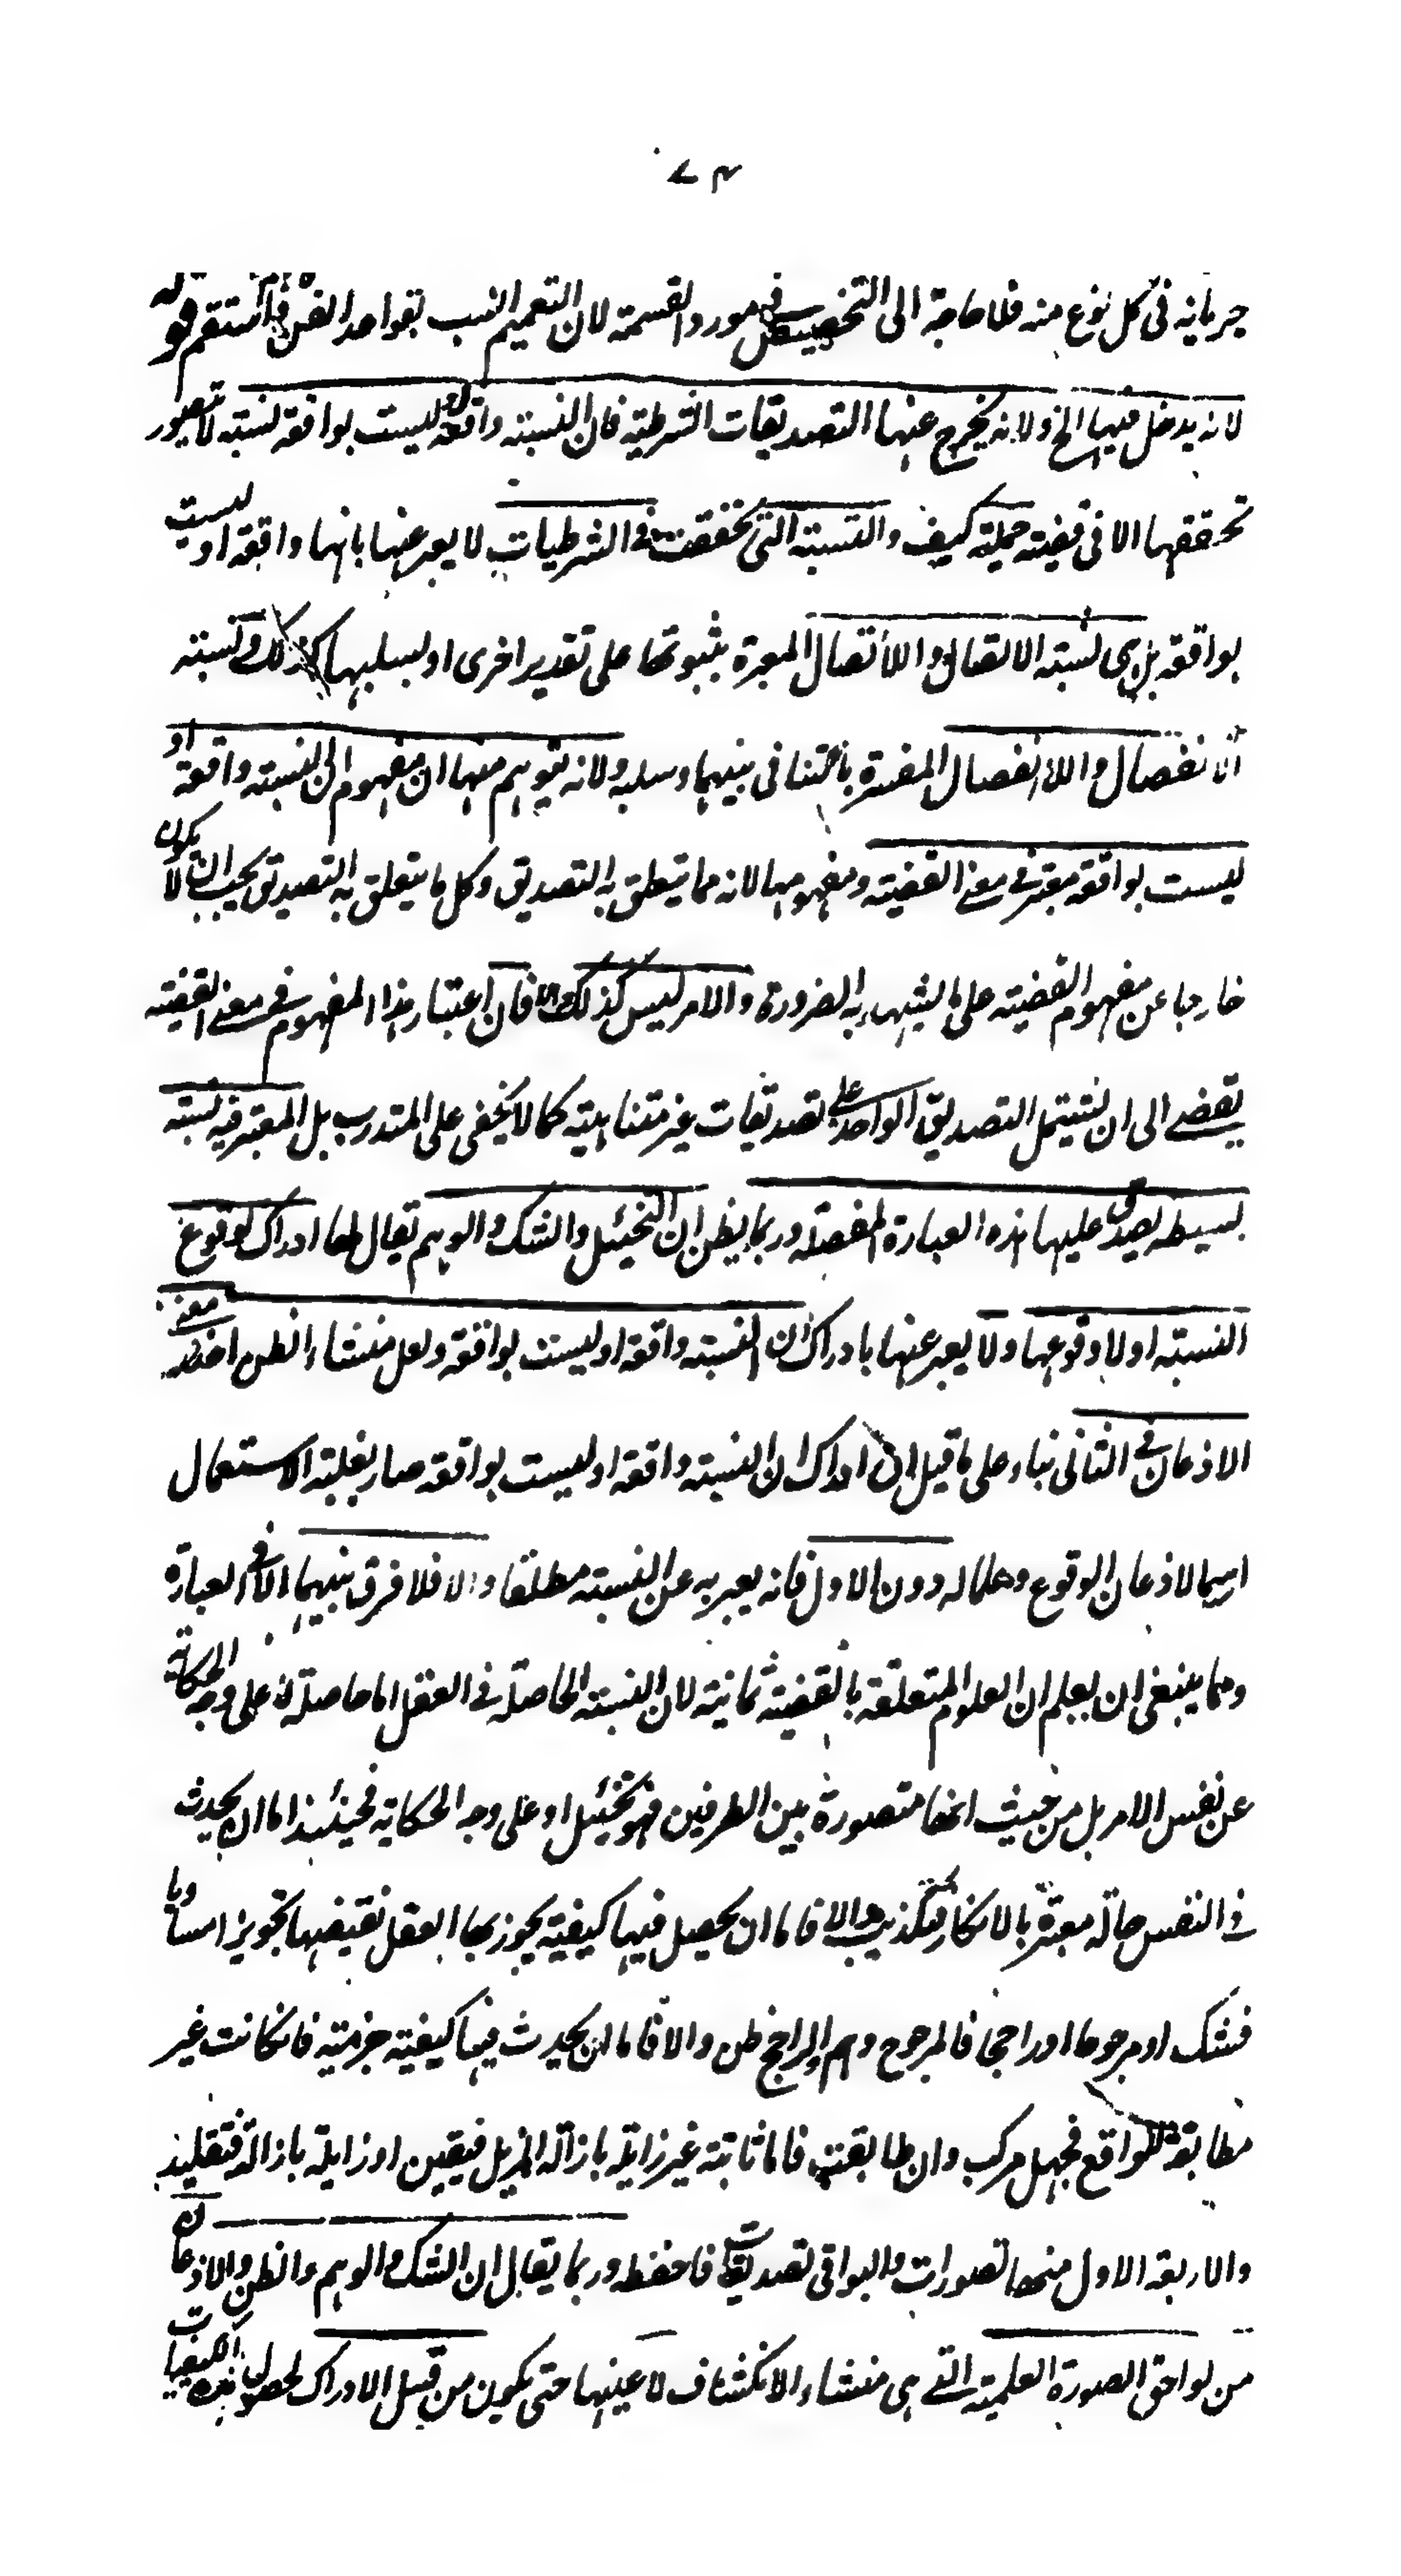 ٧٤
جريانه فى كل نوع منه فلا حاجة الى التخصيص فى مورد القسمة لان التعميم انسب بقواعد الفن فاستقم قوله
لانه يدخل فيها الخ ولانه يخرج عنها التصديقات الشرطية فان النسبة واقعة او ليست بواقعة نسبة لا يتصور
تحققها الا فى قضية حملية كيف والنسبة التى تحققت فى الشرطيات لا يعبر عنها بانها واقعة او ليست
بواقعة بل هى نسبة الاتصال واللااتصال المعبرة بثبوتها على تقدير اخرى او بسلبها كذلك ونسبة
الانفصال واللاانفصال المفسرة بالتنافى بينهما وسلبه ولانه يتوهم منها ان مفهوم ان النسبة واقعة او
ليست بواقعة معتبر فى معنى القضية ومفهومها لانه مما يتعلق به التصديق وكل ما يتعلق به التصديق يجب ان لا يكون
خارجا عن مفهوم القضية على ما يشهد به الضرورة والامر ليس كذلك فان اعتبار هذا المفهوم فى معنى القضية
يفضى الى ان يشتمل التصديق الواحد على تصديقات غير متناهية كما لا يخفى على المتدرب بل المعتبر فيه نسبة
بسيطة يصدق عليها هذه العبارة المفصلة وربما يظن ان التخييل والشك والوهم يقال لها ادراك لوقوع
النسبة او لا وقوعها ولا يعبر عنها بادراك ان النسبة واقعة او ليست بواقعة ولعل منشاء الظن اخذ معنى
الاذعان فى الثانى بناء على ما قيل ان ادراك ان النسبة واقعة او ليست بواقعة صار بغلبة الاستعمال
اسما لاذعان الوقوع وعلما له دون الاول فانه يعبر به عن النسبة مطلقا والا فلا فرق بينهما الا فى العبارة
ومما ينبغى ان يعلم ان العلوم المتعلقة بالقضية ثمانية لان النسبة الحاصلة فى العقل اما حاصلة لا على وجه الحكاية
عن نفس الامر بل من حيث انها متصورة بين الطرفين فهو تخييل او على وجه الحكاية فحينئذ اما ان يحدث
فى النفس حالة معبرة بالانكار فتكذيب والا فاما ان يحصل فيها كيفية يجوز بها العقل نقيضها تجويزا مساويا
فشك او مرجوحا او راجحا فالمرجوح وهم والراجح ظن والا فاما ان يحدث فيها كيفية جزمية فانكانت غير
مطابقة للواقع فجهل مركب وان طابقت فاما ثابتة غير زايلة بازالة المزيل فيقين او زايلة بازالته فتقليد
والاربعة الاول منها تصورات والبواقى تصديقات فاحفظه وربما يقال ان الشك والوهم والظن والاذعان
من لواحق الصورة العلمية التى هى منشاء الانكشاف لا عينها حتى يكون من قبيل الادراك لحصول هذه الكيفيات